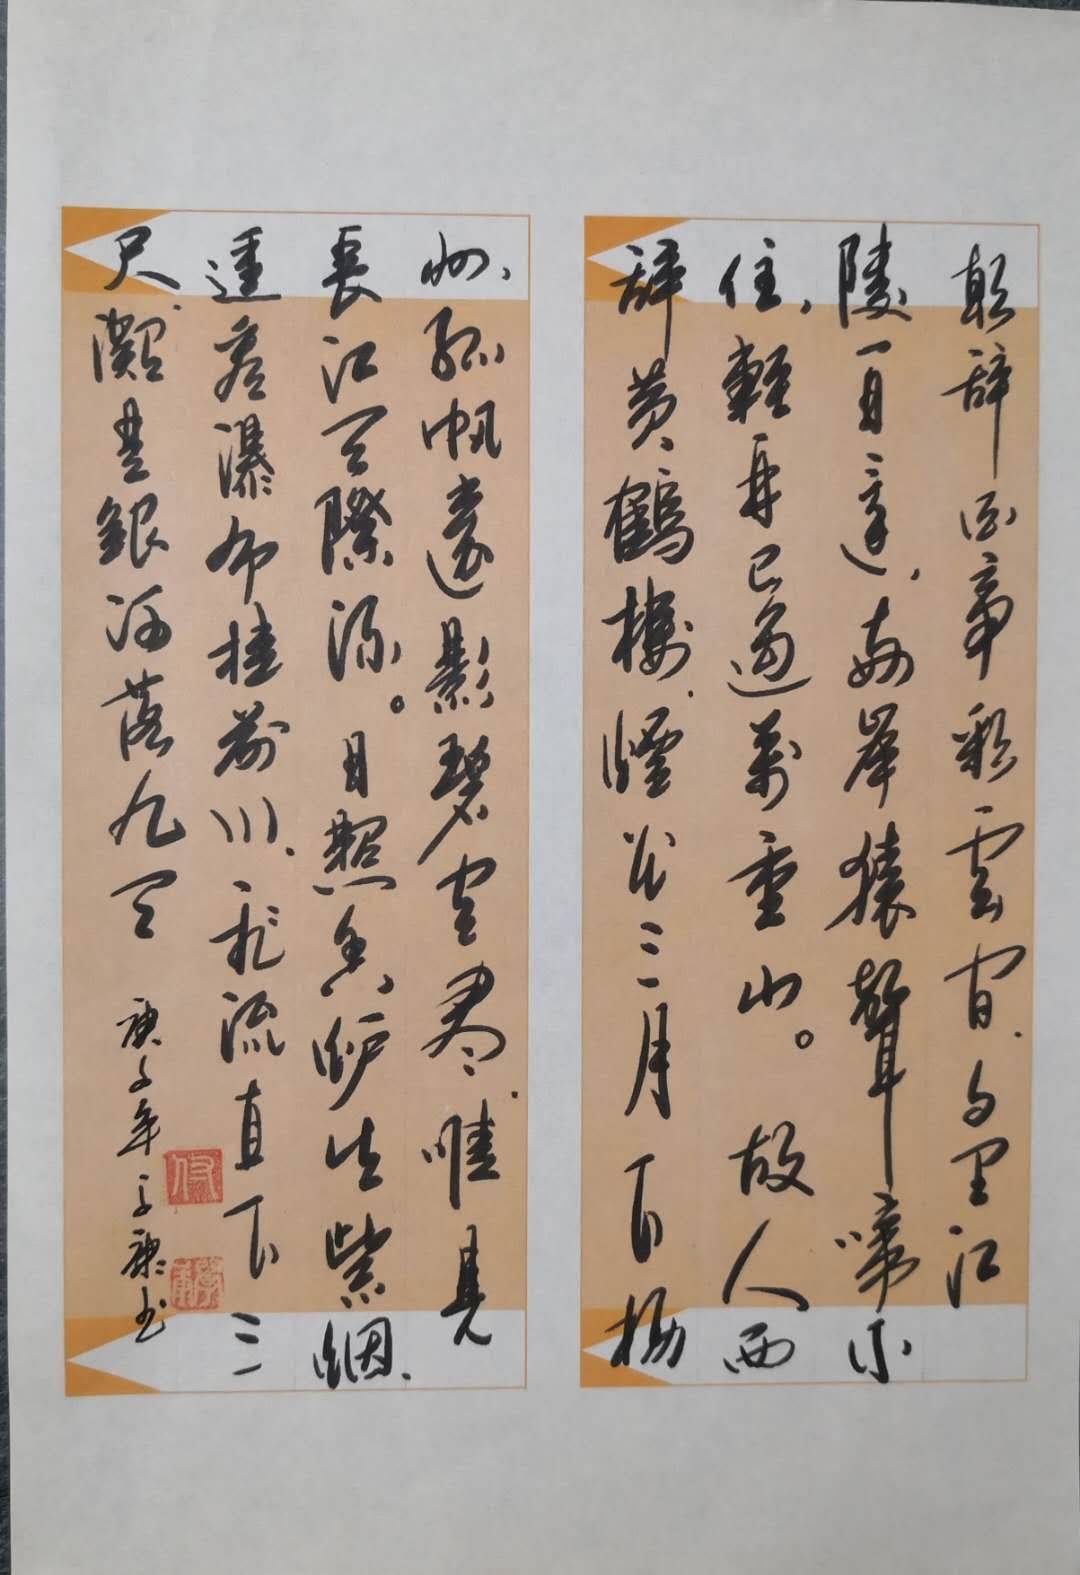 朝辞白帝彩雲间、千里江
陵一日还，两岸猿聲啼不
住，輕舟已過萬重山。故人西
辞黄鶴樓、煙花三月下揚
州、孤帆遠影碧空尽、唯見
長江天際流。日照香炉生紫烟、
遥看瀑布挂前川、飛流直下三
尺、疑是銀河落九天
庚子年子康书